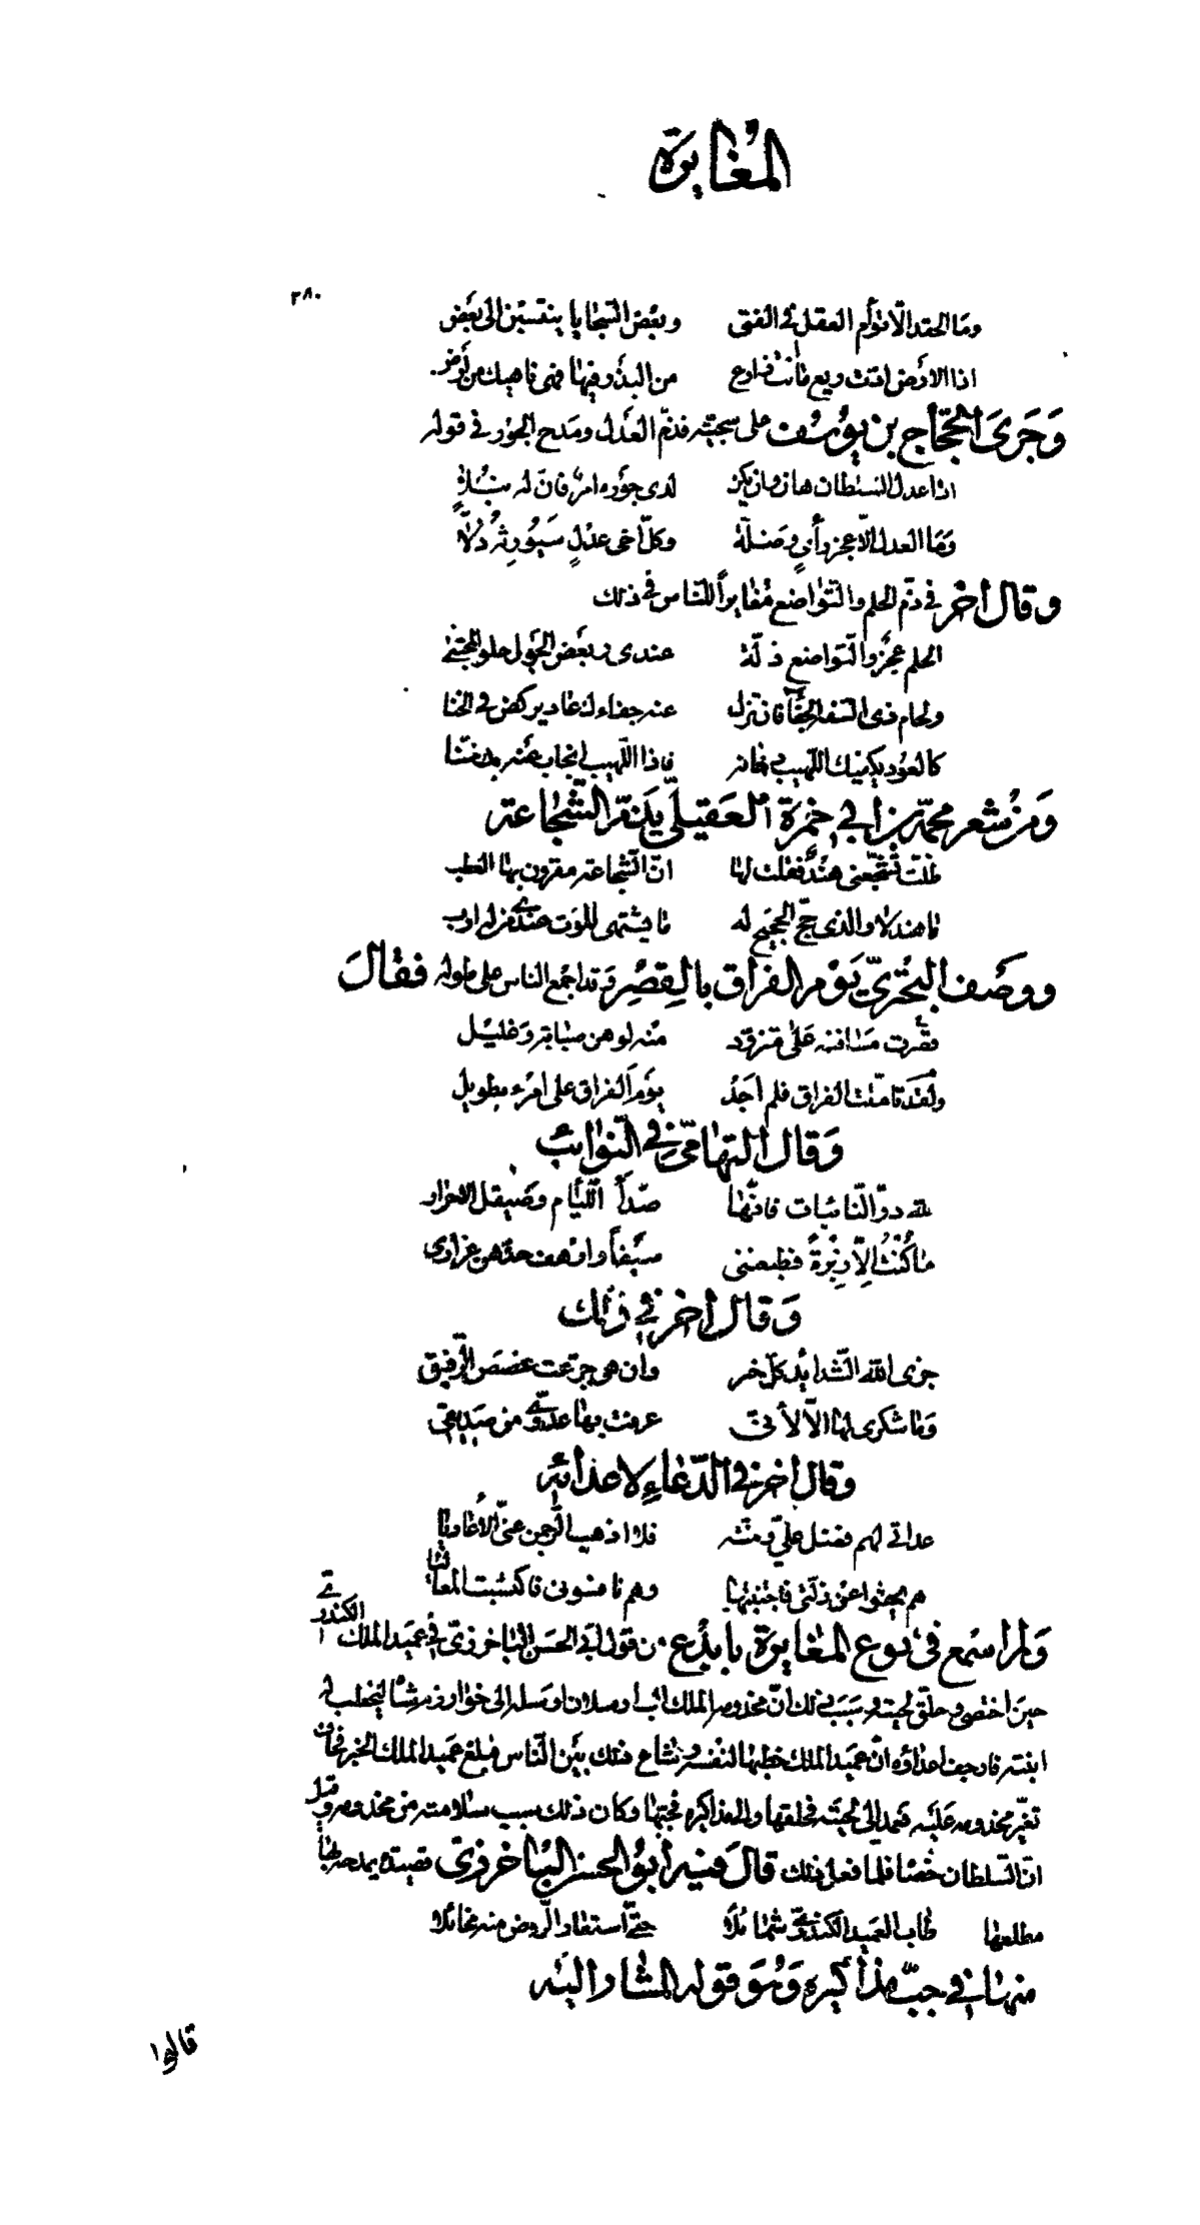 المغايرة
٣٨٠
وما الحقد الا توأم العقل في الفتى وبعض السجايا ينتسبن الى بعض
اذا الارض ادّت ريع ما انت زارع من البذر فيها فهي ناهيك من أرض
وَجَرَى الحجّاج بن يوسف على سجيته فذمّ العدل ومدح الجور في قوله
اذا عدل السلطان هان وان يكن لدى جوره امر فان له
وما العدل الّا عجز وأي وضلّة وكلّ اخي عدلٍ سيورثه ذلّا
وقال آخر في ذم الحلم والتواضع مغايراً للناس في ذلك
الحلم عجز والتواضع ذلّة عندي وبعض الجهل حلو المجتنى
ولجام ذي السفه الجفا فان تزل عنه جفاءك عاد يركض في الخنا
كالعود يكفيك اللهيب دخانه فاذا اللهيب انجاب عنه
وَمن شعر محمّد بن أبي حمزة العقيلي يذمّ الشجاعة
ظلّت تشجّعني هند فقلت لها انّ الشجاعة مقرون بها العطب
يا هند لا والذي حجّ الحجيج له ما يشتهي الموت عندي من له ادب
ووصف البُحتريّ يَوْم الفراق بالقِصَر وقد اجمع الناس على طوله فقال
قصرت مسافته على متزوّد منه لوهن صبابة وغليل
ولقد تأمّلت الفراق فلم اجد يوم الفراق على امرء بطويل
وَقال التهامي في النوائب
لله درّ النائبات فانّها صدأ اللئام وصيقل الاحرار
ما كُنْتُ إلّا زُبْرَةً فطبعنني سيفاً وارهف حدّهن غراري
وَقال آخر في ذلك
جزى الله الشدائد كلّ خير وان هي جرّعت غصص الريق
وما شكري لها الّا لأنّي عرفت بها عدوّي من صديقي
وقال آخر في الدّعاء لاعدائه
عداتي لهم فضل عليّ ومنّة فلا اذهب الرحمن عنّي الأعاديا
هم بحثوا عن زلّتي فاجتنبتها وهم نافسوني فاكتسبت المعاليا
وَلم اسمع في نوع المغايرة بابدع من قول ابي الحسن الباخرزيّ في عميد الملك الكندري
حين اخصي وحلق لحيته وسبب ذلك انّ مخدومه الملك الب أرسلان ارسله الى خوارزم شاه ليخطب له
ابنته فارجف اعداؤه انّ عميد الملك خطبها لنفسه وشاع ذلك بين النّاس فبلغ عميد الملك الخبر فخاف
تغيّر مخدومه عليه فعمد الى لحيته فحلقها والى مذاكيره فجبّها وكان ذلك سبب سلامته من مخدومه وقيل
انّ السلطان خصاه فلمّا فعل ذلك قال فيه أبو الحسن الباخرزيّ قصيدة يمدحه بها
مطلعها طاب العميد الكندريّ شمائلا حتّى استفاد الروض منه مخائلا
منها في جبّ مذاكيره وَهُوَ قوله المشار اليه
قالوا